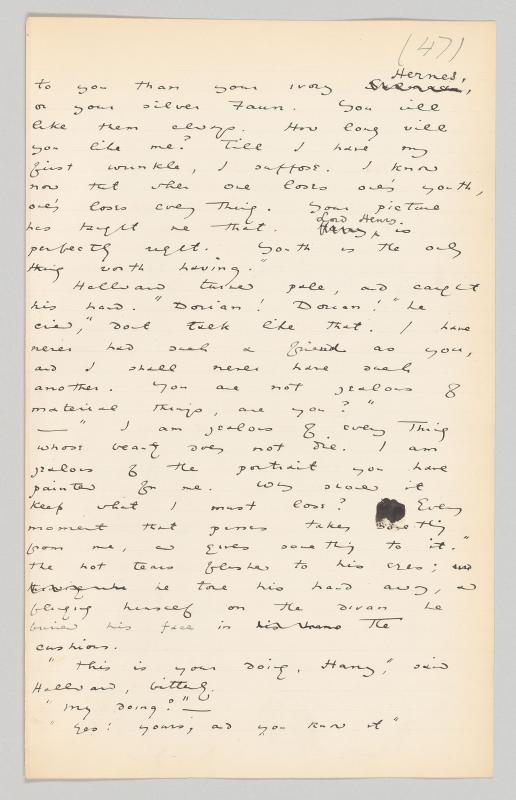 (47)
Hermes,
to you than your ivory
or your silver Faun. You will
like them always. How long will
you like me? Till I have my
first wrinkle, I suppose. I know
now that when one loses one's youth,
one's loses every thing. Your picture
Lord Henry.
has taught me that. Harry is
perfectly right. Youth is the only
thing worth having."
Hallward turned pale, and caught
his hand. "Dorian! Dorian!" he
cried, "dont talk like that. I have
never had such a friend as you,
and I shall never have such
another. You are not jealous of
material things, are you?"
— "I am jealous of every Thing
whose beauty does not die. I am
jealous of the portrait you have
painted for me. Why should it
keep what I must lose? Every
moment that passes takes something
from me, and gives something to it."
The hot tears flashed to his eyes; and
he tore his hand away, and
flinging himself on the divan he
buried his face in The
cushions.
"This is your doing, Harry," said
Hallward, bitterly.
"My doing?" —
"Yes: yours, and you know it"